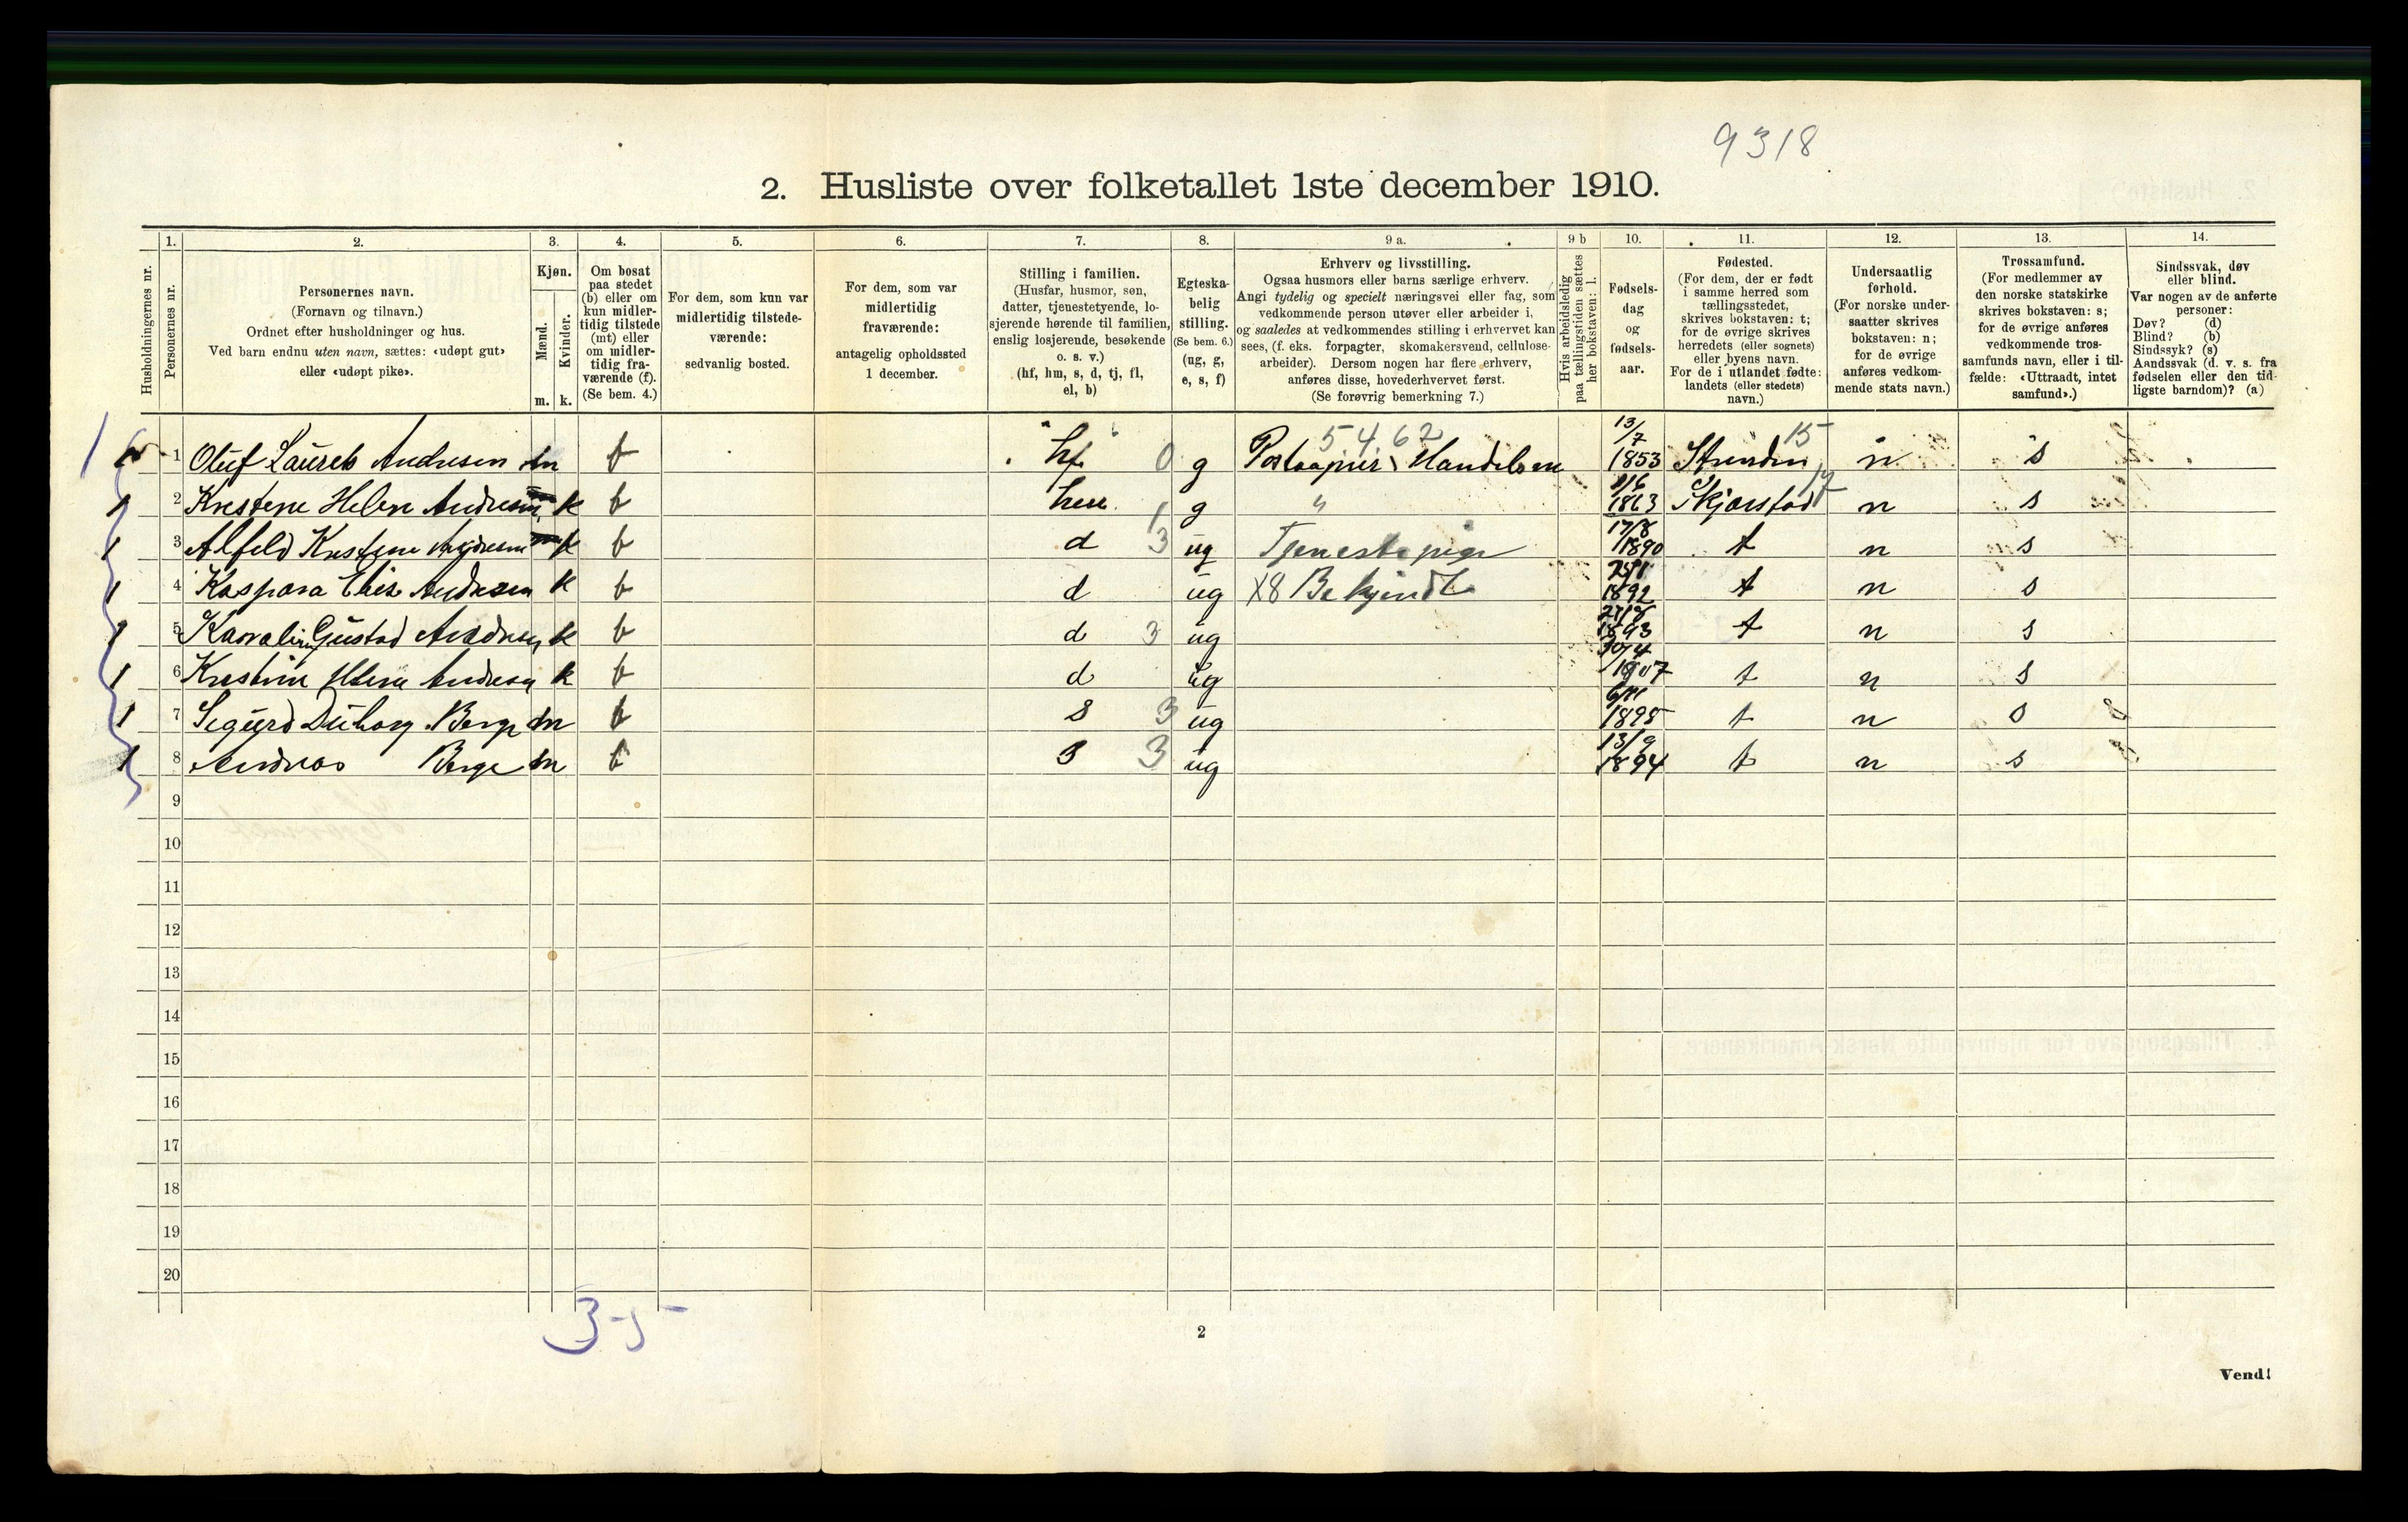 9318
2. Husliste over folketallet 1ste december 1910.
Husholdningernes nr.
1.
Personernes nr.
2.
Personernes navn.
(Fornavn og tilnavn.)
Ordnet efter husholdninger og hus.
Ved barn endnu uten navn, sættes: «udøpt gut»
eller «udøpt pike».
3.
Kjøn.
Mænd.
Kvinder.
m. k.
4.
Om bosat
paa stedet
(b) eller om
kun midler-
tidig tilstede
(mt) eller
om midler-
tidig fra-
værende (f).
(Se bem. 4.)
5.
For dem, som kun var
midlertidig tilstede-
værende:
sedvanlig bosted.
6.
For dem, som var
midlertidig
fraværende:
antagelig opholdssted
1 december.
7.
Stilling i familien.
(Husfar, husmor, søn,
datter, tjenestetyende, lo-
sjerende hørende til familien,
enslig losjerende, besøkende
o. s. v.)
(hf, hm, s, d, tj, fl,
el, b)
8.
Egteska-
belig
stilling.
(Se bem. 6.)
(ug, g,
e, s, f)
9 a.
Erhverv og livsstilling.
Ogsaa husmors eller barns særlige erhverv.
Angi tydelig og specielt næringsvei eller fag, som
vedkommende person utøver eller arbeider i,
og saaledes at vedkommendes stilling i erhvervet kan
sees, (f. eks. forpagter, skomakersvend, cellulose-
arbeider). Dersom nogen har flere erhverv,
anføres disse, hovederhvervet først.
(Se forøvrig bemerkning 7.)
9 b
Hvis arbeidsledig
paa tællingstiden sættes
her bokstaven: l.
10.
Fødsels-
dag
og
fødsels-
aar.
11.
Fødested.
(For dem, der er født
i samme herred som
tællingsstedet,
skrives bokstaven: t;
for de øvrige skrives
herredets (eller sognets)
eller byens navn.
For de i utlandet fødte:
landets (eller stedets)
navn.)
12.
Undersaatlig
forhold.
(For norske under-
saatter skrives
bokstaven: n;
for de øvrige
anføres vedkom-
mende stats navn.)
13.
Trossamfund.
(For medlemmer av
den norske statskirke
skrives bokstaven: s;
for de øvrige anføres
vedkommende tros-
samfunds navn, eller i til-
fælde: «Uttraadt, intet
samfund».)
14.
Sindssvak, døv
eller blind.
Var nogen av de anførte
personer:
Døv? (d)
Blind? (b)
Sindssyk? (s)
Aandssvak (d. v. s. fra
fødselen eller den tid-
ligste barndom)? (a)
5462 13/7 15
1 Oluf Laurets Andresen m b hf 0 g 1853 n s
2 Krestene Helen Andresen k b g " 1863 Skjærstad n s
3 Alfeld Kristine Andresen k b d 3 ug Tjenestepige 17/8 1890 t n s
4 Kaspara Andresen k b d ug X8 1892 t n s
5 Gustad Andresen k b d 3 ug 1893 t n s
6 Andresen k b d ug 1907 t n s
7 Sigurd Berge m b s 3 ug 6/11 1898 t n s
8 Andreas Berge m b s 3 ug 13/9 1894 t n s
9
10
11
12
13
14
15
16
17
18
19
20
3-5
2
Vend!